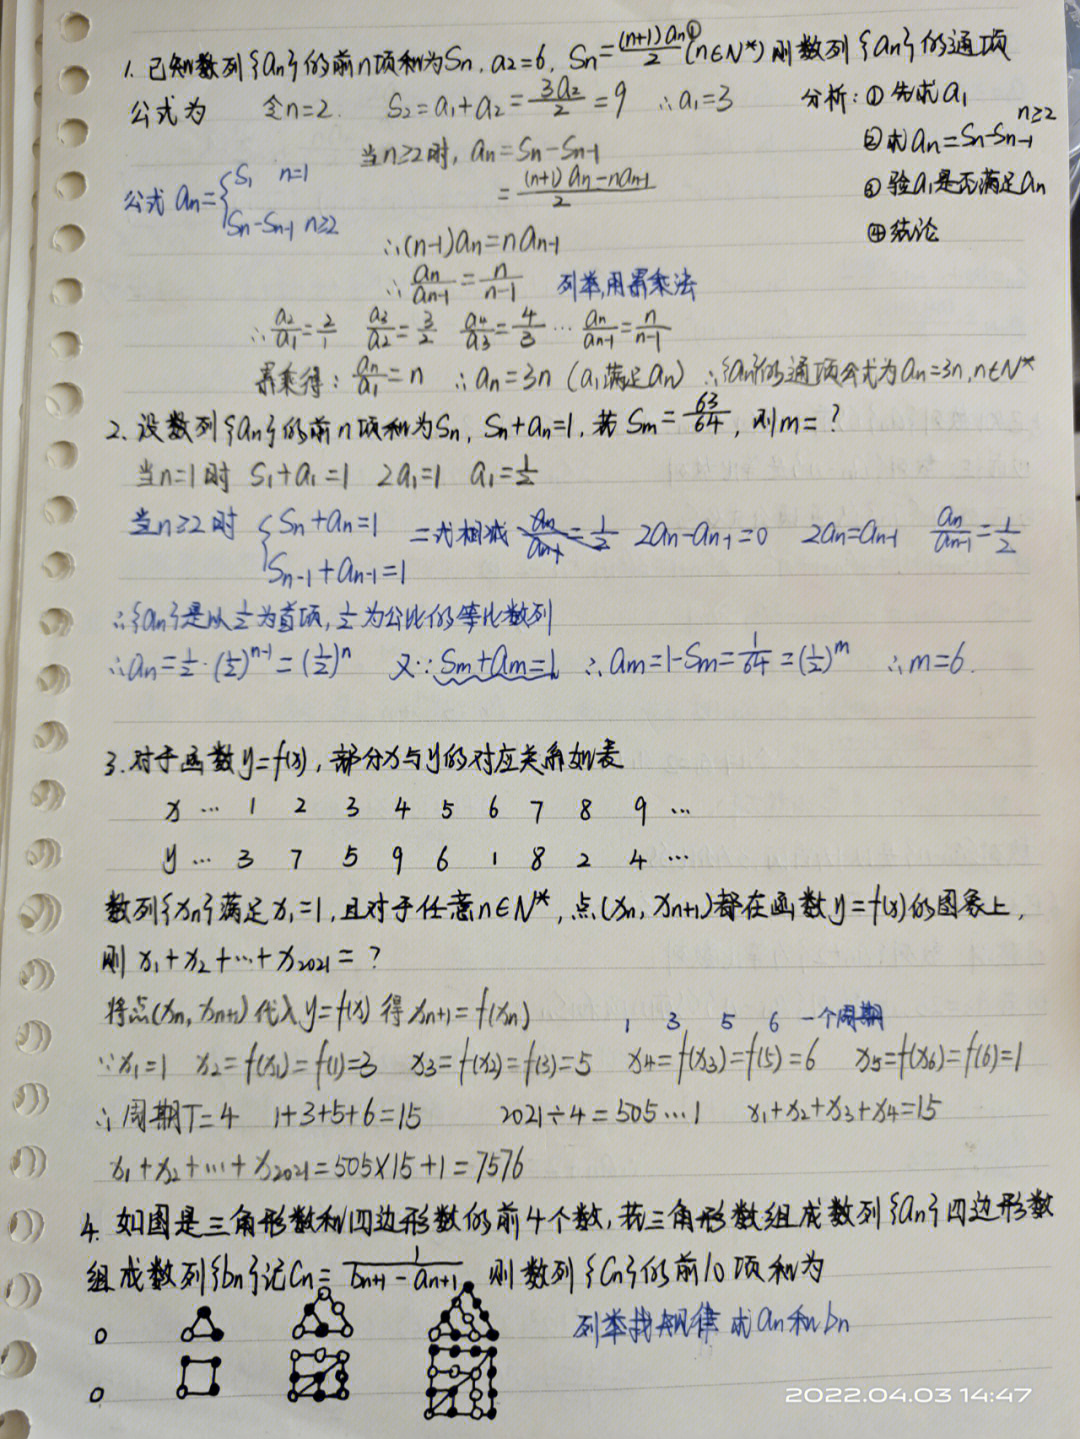 1. 已知数列{an}的前n项和为Sn, a2=6, Sn=(n+1)an/2 ① (n∈N*) 则数列{an}的通项
公式为 令n=2. S2=a1+a2=3a2/2=9 ∴a1=3 分析:①先求a1
当n≥2时, an=Sn-Sn-1 ②求an=Sn-Sn-1 n≥2
公式 an={S1 n=1 =(n+1)an-nan-1/2 ③验a1是否满足an
Sn-Sn-1 n≥2
∴(n-1)an=nan-1 ④结论
∴an/an-1=n/n-1 列举,用累乘法
∴a2/a1=2/1 a3/a2=3/2 a4/a3=4/3 ... an/an-1=n/n-1
累乘得: an/a1=n ∴an=3n (a1满足an) ∴{an}的通项公式为an=3n, n∈N*
2. 设数列{an}的前n项和为Sn, Sn+an=1, 若Sm=63/64, 则m=?
当n=1时 S1+a1=1 2a1=1 a1=1/2
当n≥2时 {Sn+an=1 二式相减 2an-an-1=0 2an=an-1 an/an-1=1/2
Sn-1+an-1=1
∴{an}是以1/2为首项, 1/2为公比的等比数列
∴an=1/2·(1/2)^n-1=(1/2)^n 又∵Sm+am=1, ∴am=1-Sm=1/64=(1/2)^m ∴m=6.
3. 对于函数y=f(x), 部分x与y的对应关系如表
x ... 1 2 3 4 5 6 7 8 9 ...
y ... 3 7 5 9 6 1 8 2 4 ...
数列{xn}满足x1=1, 且对于任意n∈N*, 点(xn, xn+1)都在函数y=f(x)的图象上,
则 x1+x2+...+x2021=?
将点(xn, xn+1)代入y=f(x) 得xn+1=f(xn) 1 3 5 6 一个周期
∵x1=1 x2=f(x1)=f(1)=3 x3=f(x2)=f(3)=5 x4=f(x3)=f(5)=6 x5=f(x6)=f(6)=1
∴周期T=4 1+3+5+6=15 2021÷4=505...1 x1+x2+x3+x4=15
x1+x2+...+x2021=505×15+1=7576
4. 如图是三角形数和四边形数的前4个数, 若三角形数组成数列{an}四边形数
组成数列{bn}记Cn=1/bn+1-an+1, 则数列{Cn}的前10项和为
列举找规律 求an和bn
2022.04.03 14:47